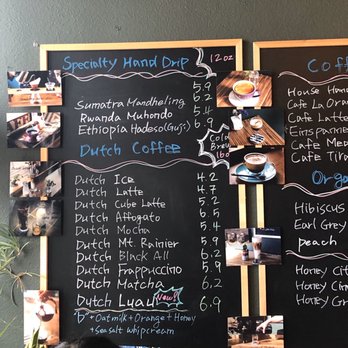 Specialty Hand Drip 12oz
5.9
Sumatra Mandheling 6.2
Rwanda Muhondo 5.4
Ethiopia Hadeso(Guji) 6.9
Dutch Coffee
Cold
Brew
16oz
Dutch Ice 4.2
Dutch Latte 4.7
Dutch Cube Latte 5.2
Dutch Affogato 6.5
Dutch Mocha 5.4
Dutch Mt. Rainier 5.9
Dutch Black All 6.2
Dutch Frappuccino 5.9
Dutch Matcha 6.2
Dutch Luau New! 6.9
"D"+Oatmilk+Orange+Honey
+Seasalt whipcream
Coff
House Hand
Cafe La Ora
Cafe Latte
Einspanner
Cafe Moc
Cafe Tira
Orga
Hibiscus
Earl Grey
peach
Honey Cit
Honey Gin
Honey Gr